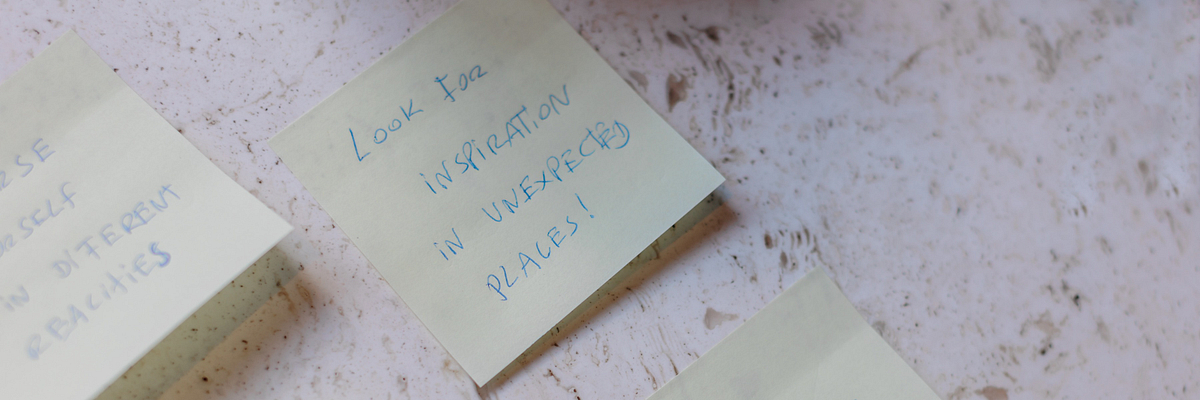 IN DIFFERENT
REALITIES
LOOK FOR
INSPIRATION
IN UNEXPECTED
PLACES!